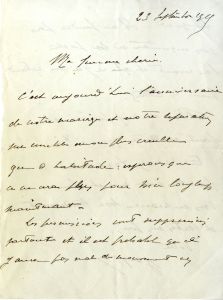 23 Septembre 1915
Ma femme chérie.
C'est aujourd'hui l'anniversaire
de notre mariage et notre séparation
me semble encore plus cruelle
que d'habitude. espérons que
ce ne sera plus pour bien longtemps
maintenant.
Les permissions sont supprimées
partout et il est probable qu'il
y aura pas mal de mouvement